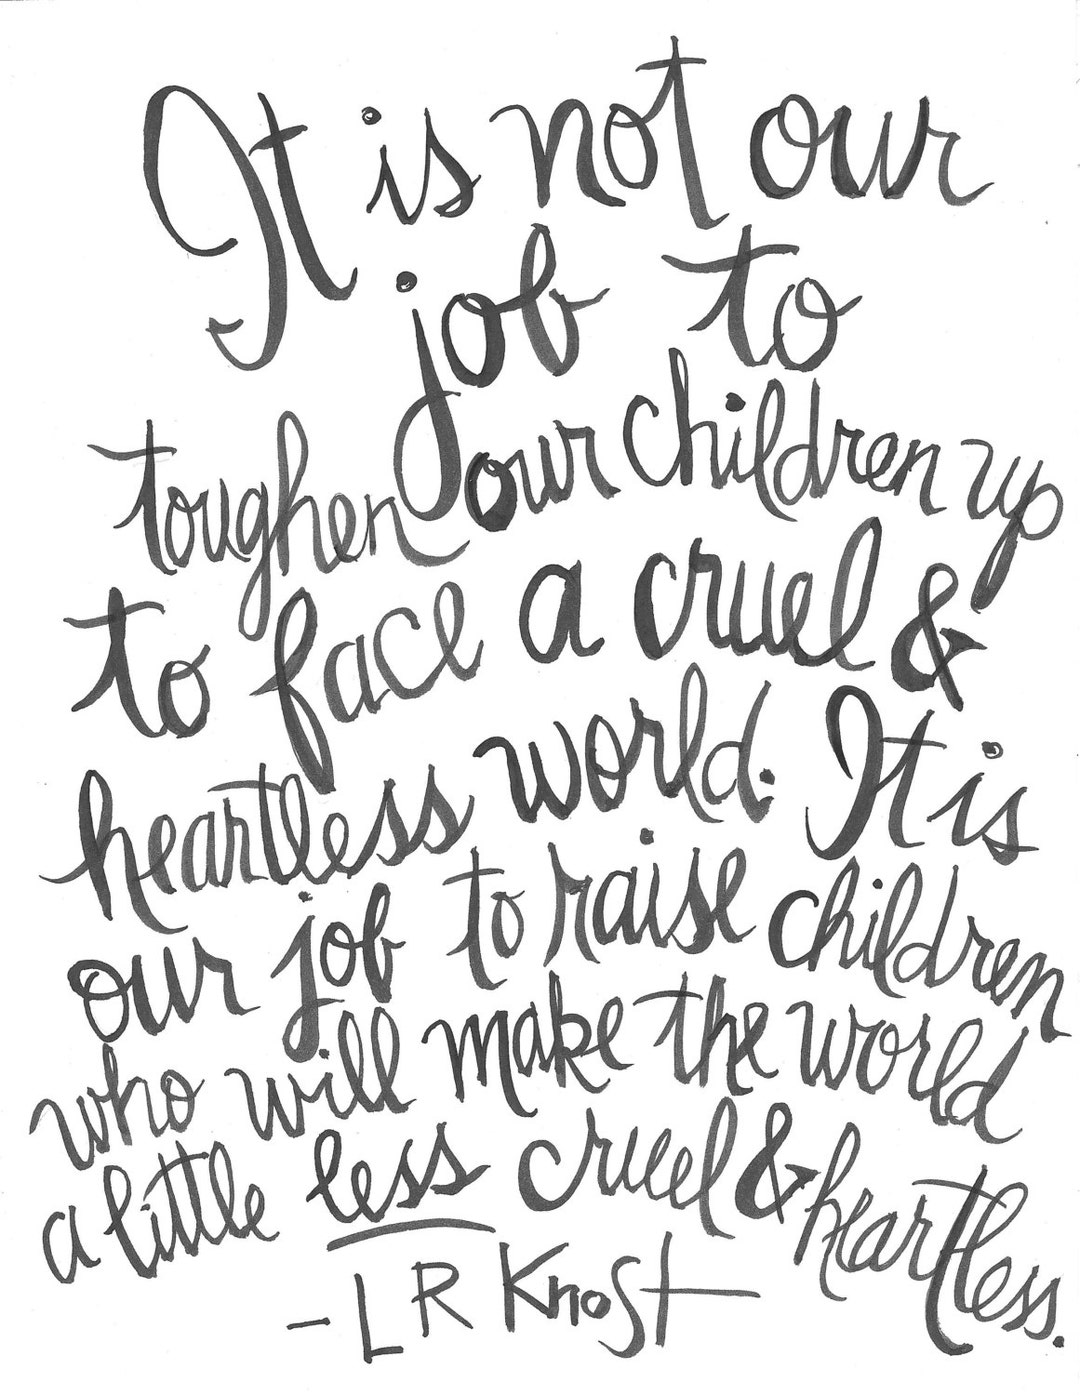 It is not our
job to
toughen our children up
to face a cruel &
heartless world. It is
our job to raise children
who will make the world
a little less cruel & heartless.
- LR Knost